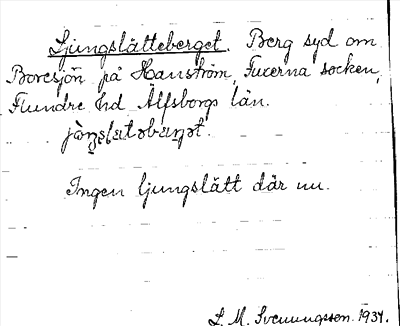 Ljungslätteberget. Berg syd om
Boresjön på Hanström, Fuxerna socken,
Flundre hd Älfsborgs län.
Ingen ljungslätt där nu.
L. M. Svenungsson. 1934.